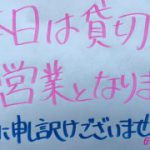 本日は貸切
営業となりま
に申し訳ございませ